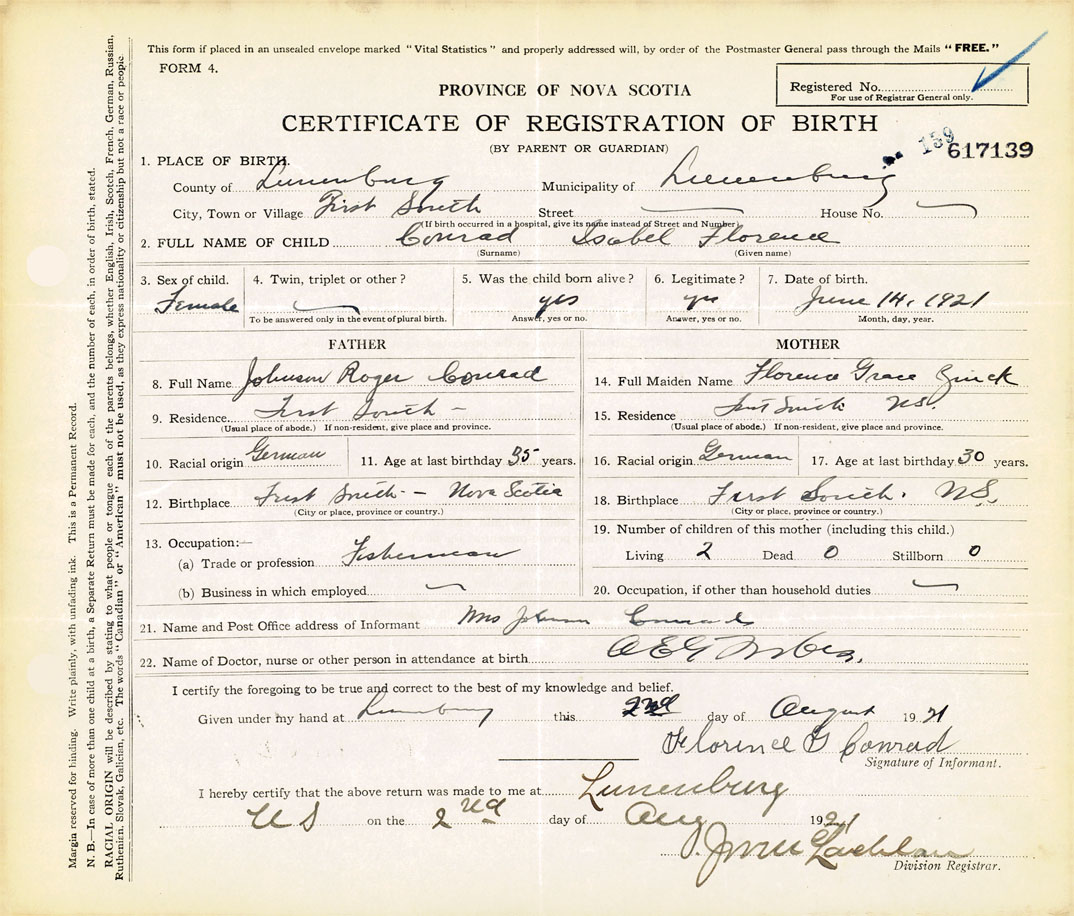 This form if placed in an unsealed envelope marked "Vital Statistics" and properly addressed will, by order of the Postmaster General pass through the Mails "FREE."
FORM 4.
Registered No.
For use of Registrar General only.
PROVINCE OF NOVA SCOTIA
CERTIFICATE OF REGISTRATION OF BIRTH
(BY PARENT OR GUARDIAN)
159
617139
1. PLACE OF BIRTH.
County of Lunenburg Municipality of Lunenburg
City, Town or Village First South Street House No.
(If birth occurred in a hospital, give its name instead of Street and Number)
2. FULL NAME OF CHILD Conrad Isabel Florence
(Surname) (Given name)
3. Sex of child. 4. Twin, triplet or other? 5. Was the child born alive? 6. Legitimate? 7. Date of birth.
Female yes yes June 14, 1921
To be answered only in the event of plural birth. Answer, yes or no. Answer, yes or no. Month, day, year.
FATHER
8. Full Name Johnson Roger Conrad
9. Residence First South
(Usual place of abode.) If non-resident, give place and province.
10. Racial origin German 11. Age at last birthday 35 years.
12. Birthplace First South - Nova Scotia
(City or place, province or country.)
13. Occupation:—
(a) Trade or profession Fisherman
(b) Business in which employed
MOTHER
14. Full Maiden Name Florence Grace Zinck
15. Residence First South N.S.
(Usual place of abode.) If non-resident, give place and province.
16. Racial origin German 17. Age at last birthday 30 years.
18. Birthplace First South. N.S.
(City or place, province or country.)
19. Number of children of this mother (including this child.)
Living 2 Dead 0 Stillborn 0
20. Occupation, if other than household duties
21. Name and Post Office address of Informant Mrs Johnson Conrad
22. Name of Doctor, nurse or other person in attendance at birth
I certify the foregoing to be true and correct to the best of my knowledge and belief.
Given under my hand at Lunenburg this 2nd day of August 1921
Florence G Conrad
Signature of Informant.
I hereby certify that the above return was made to me at Lunenburg
NS on the 2nd day of Aug 1921
Division Registrar.
Margin reserved for binding. Write plainly, with unfading ink. This is a Permanent Record.
N. B.—In case of more than one child at a birth, a Separate Return must be made for each, and the number of each, in order of birth, stated.
RACIAL ORIGIN will be described by stating to what people or tongue each of the parents belongs, whether English, Irish, Scotch, French, German, Russian,
Ruthenian, Slovak, Galician, etc. The words "Canadian" or "American" must not be used, as they express nationality or citizenship but not a race or people